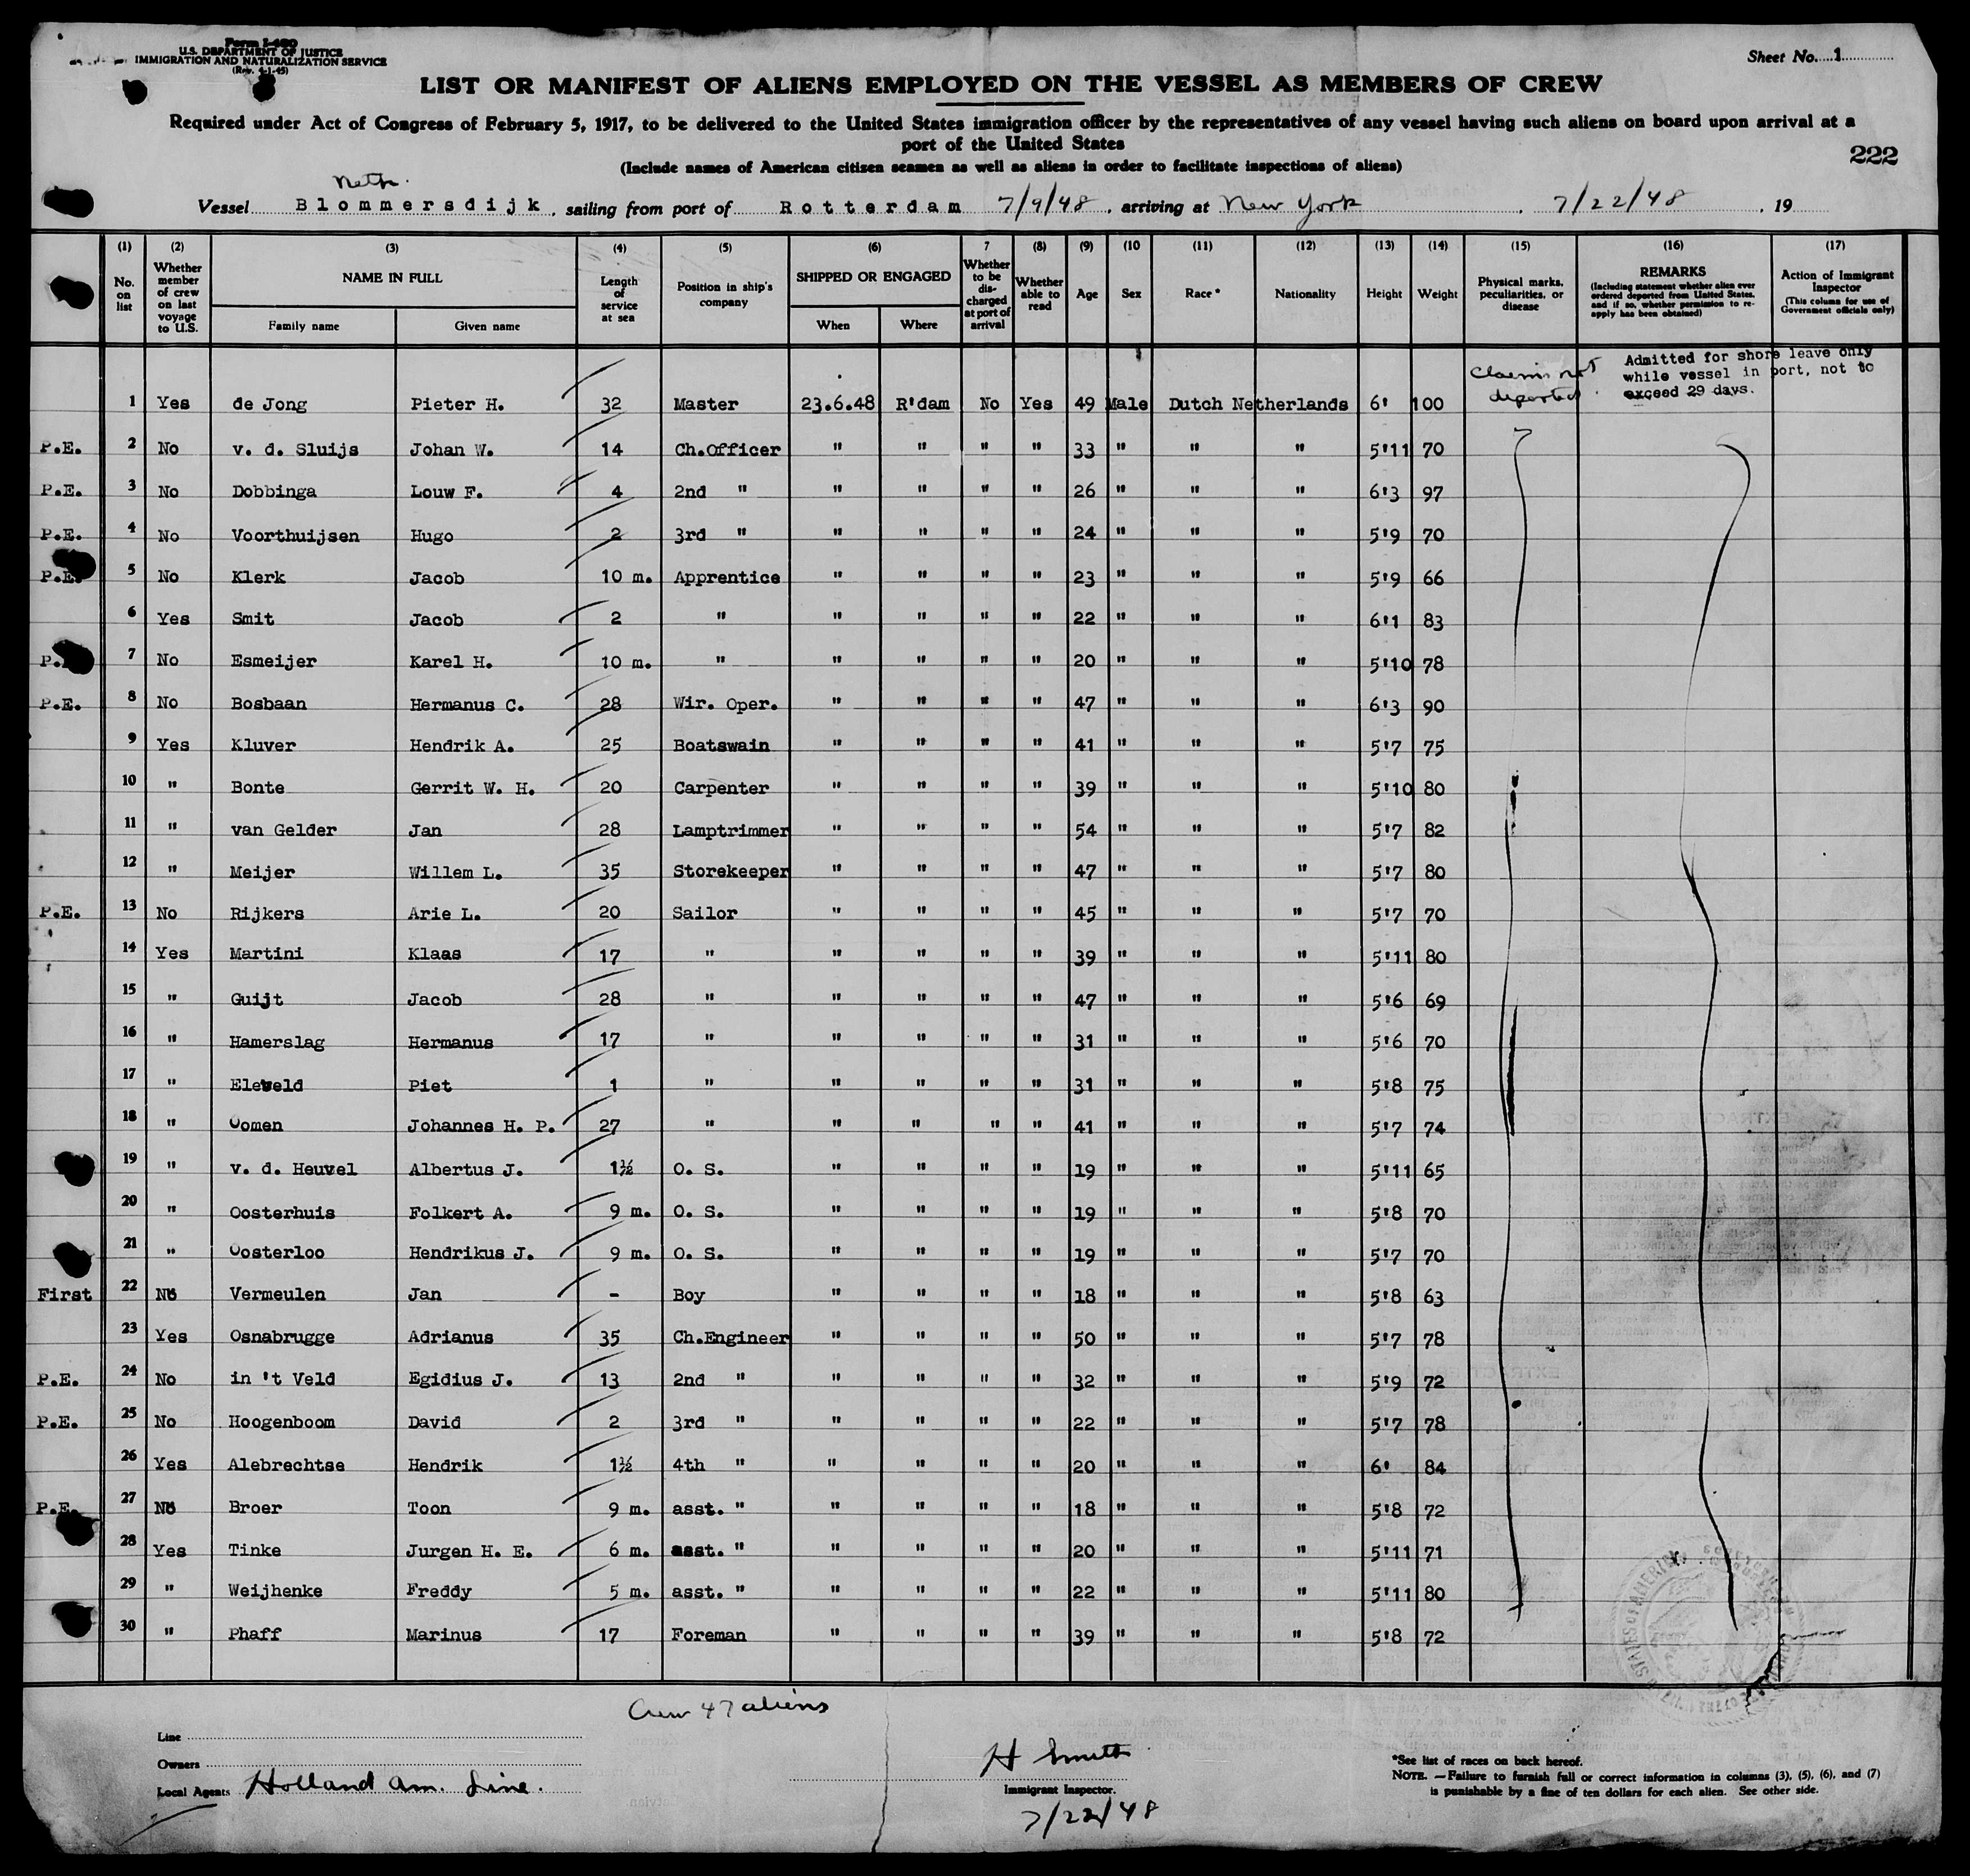 Form I-480
U.S. DEPARTMENT OF JUSTICE
IMMIGRATION AND NATURALIZATION SERVICE
(Rev. 4-1-45)
Sheet No. 1
LIST OR MANIFEST OF ALIENS EMPLOYED ON THE VESSEL AS MEMBERS OF CREW
Required under Act of Congress of February 5, 1917, to be delivered to the United States immigration officer by the representatives of any vessel having such aliens on board upon arrival at a
port of the United States
222
(Include names of American citizen seamen as well as aliens in order to facilitate inspections of aliens)
Neth.
Vessel Blommersdijk, sailing from port of Rotterdam 7/9/48, arriving at New York, 7/22/48, 19
(1) (2) (3) (4) (5) (6) 7 (8) (9) (10 (11) (12) (13) (14) (15) (16) (17)
No. on list Whether member of crew on last voyage to U.S. NAME IN FULL Family name Given name Length of service at sea Position in ship's company SHIPPED OR ENGAGED When Where Whether to be discharged at port of arrival Whether able to read Age Sex Race * Nationality Height Weight Physical marks, peculiarities, or disease REMARKS (Including statement whether alien ever ordered deported from United States, and if so, whether permission to reapply has been obtained) Action of Immigrant Inspector (This column for use of Government officials only)
Claims not deported.
Admitted for shore leave only
while vessel in port, not to
exceed 29 days.
1 Yes de Jong Pieter H. 32 Master 23.6.48 R'dam No Yes 49 Male Dutch Netherlands 6' 100
P.E. 2 No v. d. Sluijs Johan W. 14 Ch.Officer " " " " 33 " " " 5'11 70
P.E. 3 No Dobbinga Louw F. 4 2nd " " " " " 26 " " " 6'3 97
P.E. 4 No Voorthuijsen Hugo 2 3rd " " " " " 24 " " " 5'9 70
P.E. 5 No Klerk Jacob 10 m. Apprentice " " " " 23 " " " 5'9 66
6 Yes Smit Jacob 2 " " " " " 22 " " " 6'1 83
P. 7 No Esmeijer Karel H. 10 m. " " " " " 20 " " " 5'10 78
P.E. 8 No Bosbaan Hermanus C. 28 Wir. Oper. " " " " 47 " " " 6'3 90
9 Yes Kluver Hendrik A. 25 Boatswain " " " " 41 " " " 5'7 75
10 " Bonte Gerrit W. H. 20 Carpenter " " " " 39 " " " 5'10 80
11 " van Gelder Jan 28 Lamptrimmer " " " " 54 " " " 5'7 82
12 " Meijer Willem L. 35 Storekeeper " " " " 47 " " " 5'7 80
P.E. 13 No Rijkers Arie L. 20 Sailor " " " " 45 " " " 5'7 70
14 Yes Martini Klaas 17 " " " " " 39 " " " 5'11 80
15 " Guijt Jacob 28 " " " " " 47 " " " 5'6 69
16 " Hamerslag Hermanus 17 " " " " " 31 " " " 5'6 70
17 " Eleveld Piet 1 " " " " " 31 " " " 5'8 75
18 " Oomen Johannes H. P. 27 " " " " " 41 " " " 5'7 74
19 " v. d. Heuvel Albertus J. 1½ O. S. " " " " 19 " " " 5'11 65
20 " Oosterhuis Folkert A. 9 m. O. S. " " " " 19 " " " 5'8 70
21 " Oosterloo Hendrikus J. 9 m. O. S. " " " " 19 " " " 5'7 70
First 22 No Vermeulen Jan - Boy " " " " 18 " " " 5'8 63
23 Yes Osnabrugge Adrianus 35 Ch.Engineer " " " " 50 " " " 5'7 78
P.E. 24 No in 't Veld Egidius J. 13 2nd " " " " " 32 " " " 5'9 72
P.E. 25 No Hoogenboom David 2 3rd " " " " " 22 " " " 5'7 78
26 Yes Alebrechtse Hendrik 1½ 4th " " " " " 20 " " " 6' 84
P.E. 27 No Broer Toon 9 m. asst. " " " " " 18 " " " 5'8 72
28 Yes Tinke Jurgen H. E. 6 m. asst. " " " " " 20 " " " 5'11 71
29 " Weijhenke Freddy 5 m. asst. " " " " " 22 " " " 5'11 80
30 " Phaff Marinus 17 Foreman " " " " 39 " " " 5'8 72
Crew 47 aliens
Line
Owners
Local Agents Holland Am. Line.
H Smith
Immigrant Inspector.
7/22/48
*See list of races on back hereof.
NOTE.—Failure to furnish full or correct information in columns (3), (5), (6), and (7)
is punishable by a fine of ten dollars for each alien. See other side.